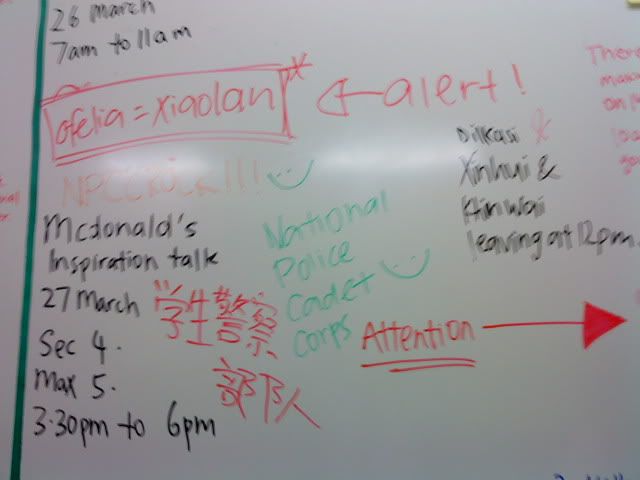 26 march
7am to 11am
ofelia = xiaolan
alert!
NPCCROCK!!!
Mcdonald's
Inspiration talk
27 March
Sec 4.
Max 5.
3.30pm to 6pm
National
Police
Cadet
Corps
学生警察
Attention
Dilkasi &
Xinhui &
Khin Waii
leaving at 12pm.
There
on